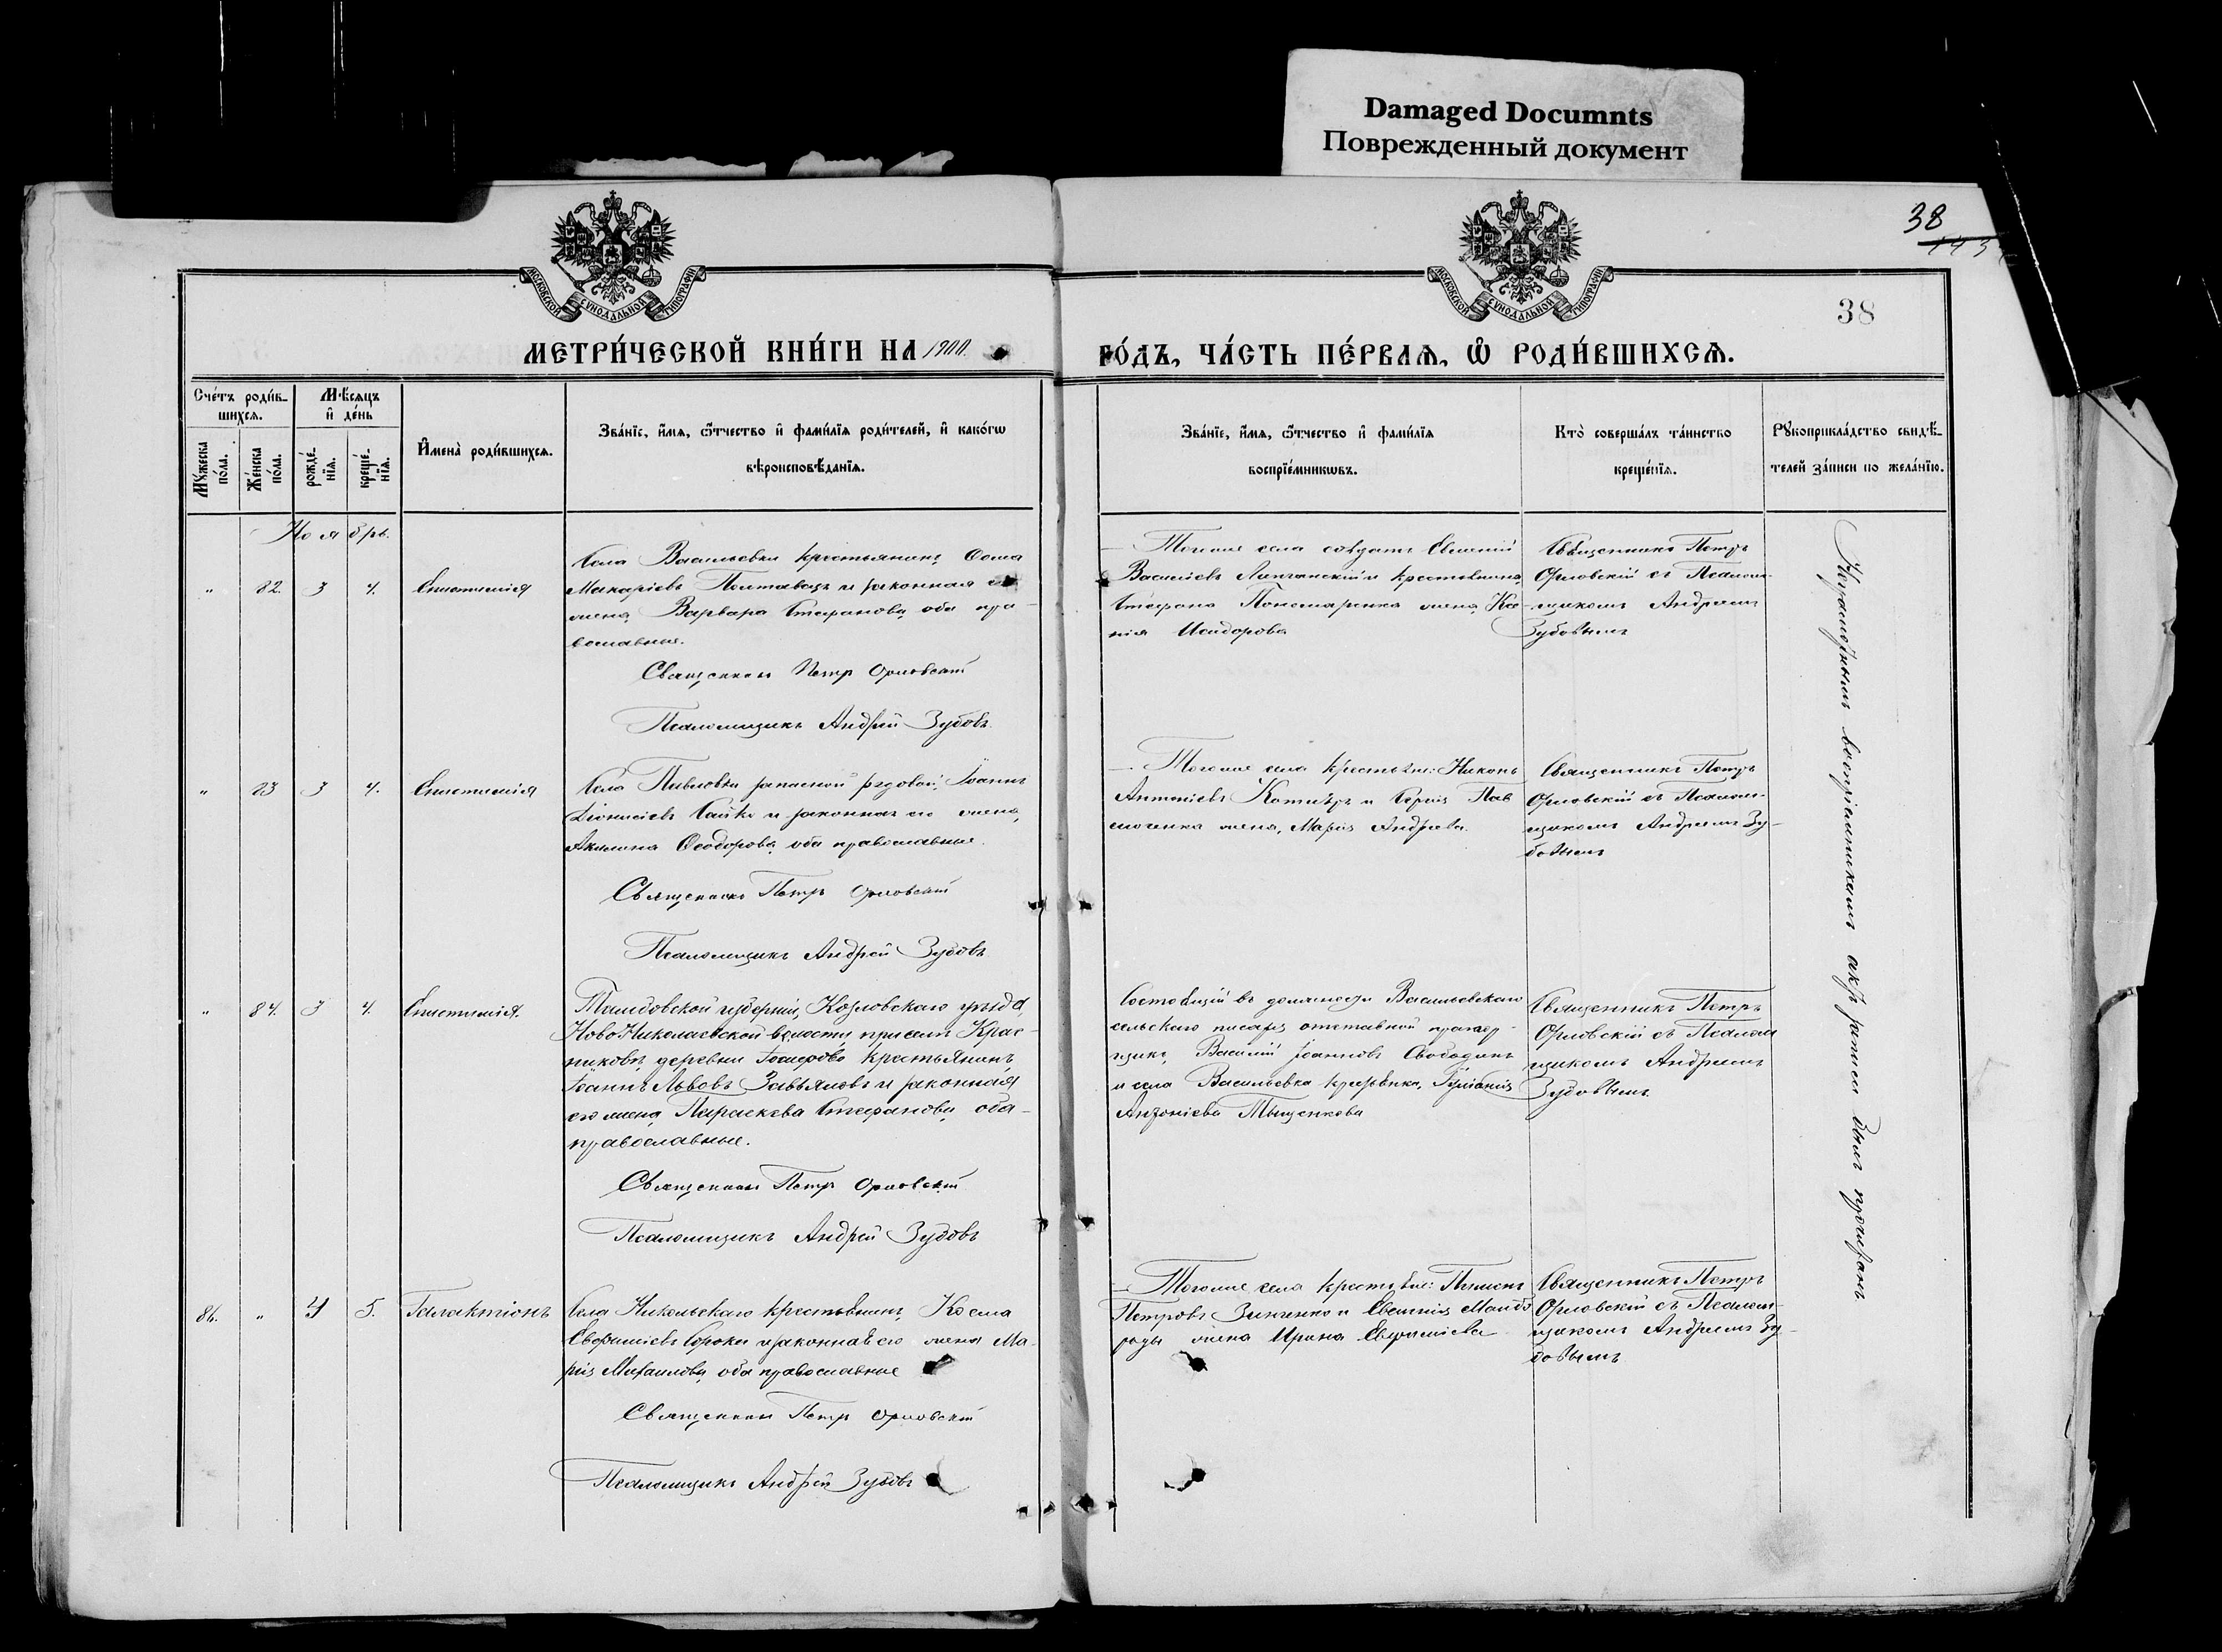 Damaged Documnts
Поврежденный документ
38
38
МОСКОВСКОЙ СѴНОДАЛЬНОЙ ТИПОГРАФІИ
МОСКОВСКОЙ СѴНОДАЛЬНОЙ ТИПОГРАФІИ
МЕТРИ́ЧЕСКОЙ КНИ́ГИ НА 1900.
ГО́ДЪ, ЧА́СТЬ ПЕ́РВАѦ, Ѽ РОДИ́ВШИХСѦ.
Сче́тъ роди́в-
шихсѧ.
Мꙋ́жеска по́ла.
Же́нска по́ла.
Мѣ́сѧцъ
и҆ де́нь
рожде́-
нїѧ.
креще́-
нїѧ.
И҆мена̀ роди́вшихсѧ.
Зва́нїе, и҆́мѧ, ѻ҆́тчество и҆ фами́лїѧ роди́телей, и҆ како́гѡ
вѣроисповѣ́данїѧ.
Зва́нїе, и҆́мѧ, ѻ҆́тчество и҆ фами́лїѧ
воспрїе́мникѡвъ.
Кто̀ соверша́лъ та́инство
креще́нїѧ.
Рꙋкоприкла́дство свидѣ́-
телей за́писи по жела́нїю.
Ноябрь.
" 82. 3 4. Епистимія
Села Васильевки крестьянинъ, Ѳома
Макаріевъ Полтавецъ и законная его
жена, Варвара Стефанова, оба пра-
вославные.
Священник Петр Орловскій
Псаломщикъ Андрей Зубовъ.
Тогоже села солдатъ Евгеній
Василіевъ и крестьянина,
Стефана Пономаренка жена, Ксе-
нія Исидорова
Священникъ Петръ
Орловскій съ Псалом-
щикомъ Андреемъ
Зубовымъ
" 83 3 4. Епистимія
Села Павловки запасной рядовой, Іоаннъ
Діонисіевъ Сайко и законная его жена,
Акилина Ѳеодорова, оба православные.
Священникъ Петръ Орловскій
Псаломщикъ Андрей Зубовъ
Тогоже села крестьяне: Никонъ
Антоніевъ и Сергія Пав
люченка жена, Марія Андреева.
Священникъ Петръ
Орловскій съ Псалом-
щикомъ Андреемъ Зу-
бовымъ
" 84. 3 4. Епистимія.
Тамбовской губерніи, Козловскаго уѣзда,
Ново-Николаевской волости, при селѣ
деревни крестьянинъ,
Іоаннъ Львовъ Завьяловъ и законная
его жена, Параскева Стефанова, оба-
православные.
Священник Петр Орловскій
Псаломщикъ Андрей Зубовъ
Состоящій въ должности Васильевскаго
сельскаго писаря отставной
Василій Іоанновъ Свободинъ
и села Васильевка Іуліанія
Антоніева Тыщенкова
Священникъ Петръ
Орловскій съ Псалом
щикомъ Андреемъ
Зубовымъ.
86. " 4 5. Галактіонъ
Села Никольскаго крестьянинъ, Косма
Евфиміевъ Сорока и законная его жена Ма-
рія Михаилова, оба православные
Священник Петр Орловскій
Псаломщикъ Андрей Зубовъ
Тогоже села крестьяне: Пименъ
Петровъ Зинченко и Евгенія
жена Ирина Евфиміева
Священникъ Петръ
Орловскій съ Псалом-
щикомъ Андреемъ Зу-
бовымъ
Неграмотнымъ воспріемникамъ актъ записи былъ прочитанъ